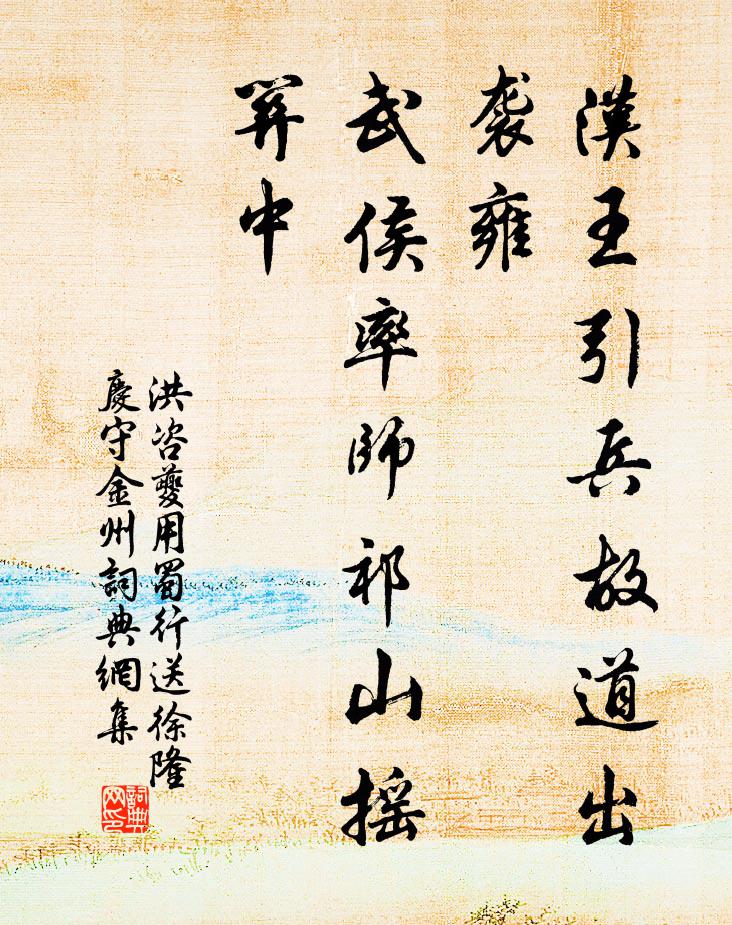 漢王引兵故道出
袭雍
武侯率師祁山摇
関中
洪咨夔用蜀行送徐隆
慶守金州詞典網集
詞典
网印